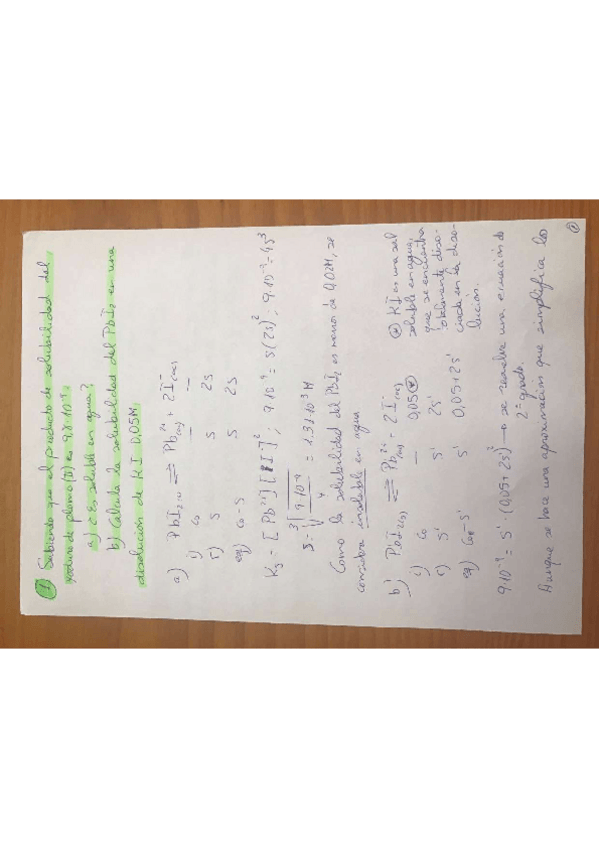 ① Sabiendo que el producto de solubilidad del
yoduro de plomo (II) es 9,8·10⁻⁹.
a) ¿Es soluble en agua?
b) Calcula la solubilidad del PbI₂ en una
disolución de KI 0,05M.
a) PbI₂ ⇌ Pb²⁺(ac) + 2I⁻(ac)
i) C₀ — —
r) S S 2S
eq) C₀-S S 2S
Ks = [Pb²⁺][I⁻]² ; 9·10⁻⁹ = S(2S)² ; 9·10⁻⁹ = 4S³
S = ∛(9·10⁻⁹/4) = 1.31·10⁻³ M
Como la solubilidad del PbI₂ es menor de 0,02M, se
considera insoluble en agua
b) PbI₂(s) ⇌ Pb²⁺(ac) + 2I⁻(ac)
i) C₀ — 0,05 ⊛
r) S' S' 2S'
eq) C₀-S' S' 0,05+2S'
⊛ KI es una sal
soluble en agua,
que se encuentra
totalmente diso-
ciada en la diso-
lución.
9·10⁻⁹ = S'·(0,05+2S')² → se resuelve una ecuación de
2º grado.
Aunque se hace una aproximación que simplifica los